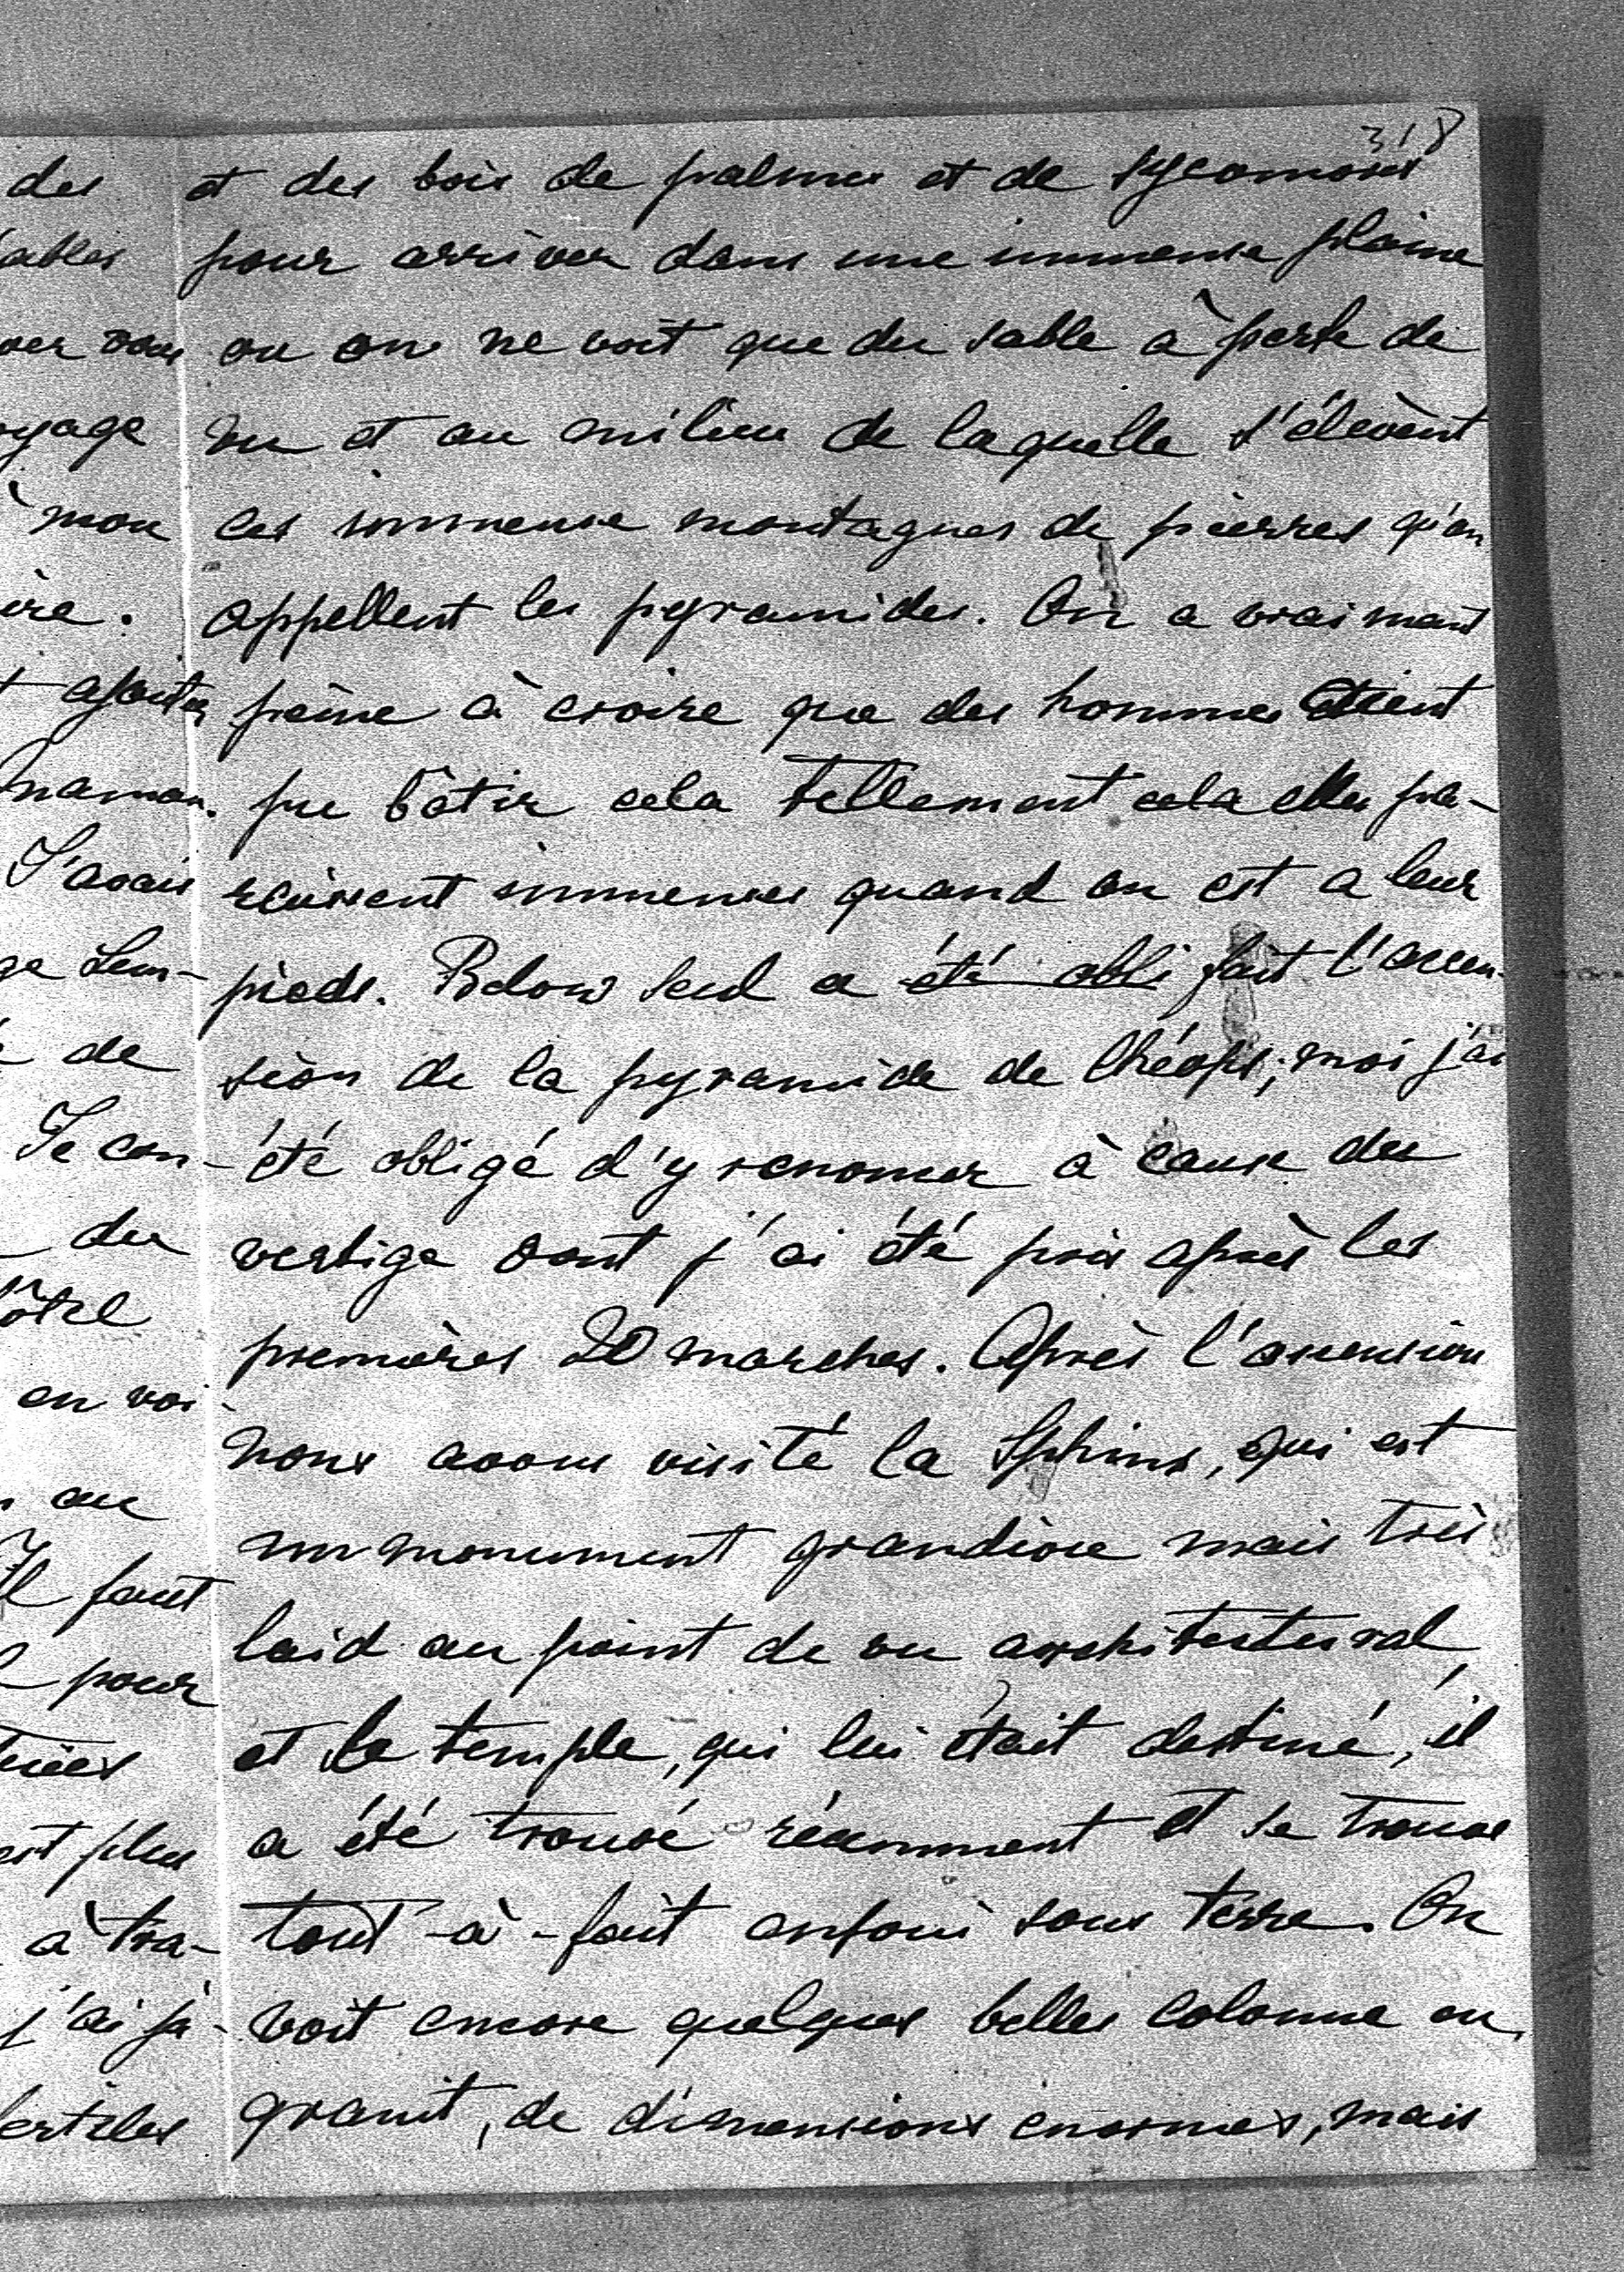 318
et des bois de palmes et de sycomores
pour arriver dans une immense plaine
ou on ne voit que du sable à perte de
vu et au milieu de laquelle s'élèvent
ces immense montagnes de pierres qu'on
appellent les pyramides. On a vraiment
peine à croire que des hommes aient
pu bâtir cela tellement cela elles pa-
raissent immenses quand on est a leur
pieds. Below seul a été obli fait l'ascen-
sion de la pyramide de Chéops; moi j'ai
été obligé d'y renoncer à cause du
vertige dont j'ai été pris après les
premières 20 marches. Après l'ascension
nous avons visité la Sphinx, qui est
un monument grandiose mais très
laid au point de vu architectural,
et le temple, qui lui était destiné, il
a été trouvé récemment et se trouve
tout-à-fait enfoui sous terre. On
voit encore quelques belles colonne en
granit, de dimensions enormes, mais
des
ables
ver vous
oyage
à mon
ère.
t ajouter
maman.
J'avais
de
Je con-
du
ôtel
en voi-
au
Il faut
pour
est plus
à tra-
j'ai ja-
fertiles